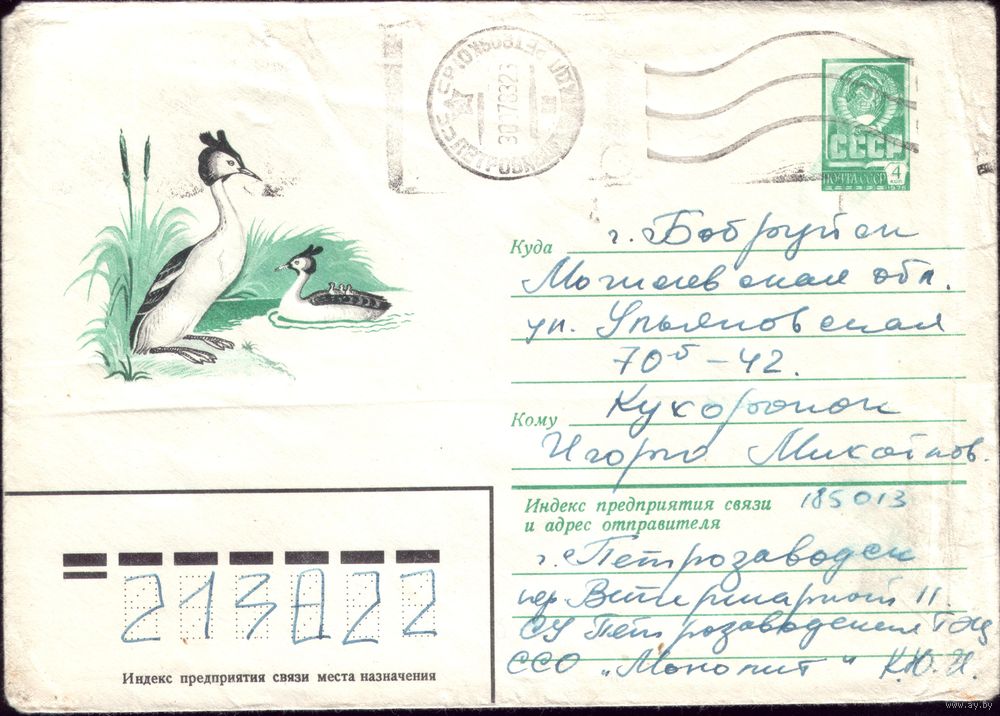 СССР
ПОЧТА СССР 4 КОП
1976
Куда г. Бобруйск
Могилевская обл.
ул. Ульяновская
70б - 42.
Кому Кухарёнок
Игорю Михайлов.
Индекс предприятия связи 185013
и адрес отправителя
г. Петрозаводск
пер. Ветеринарный 11
СУ Петрозаводская ТЭЦ
ССО "Монолит" К.Ю.И.
213822
Индекс предприятия связи места назначения
www.ay.by